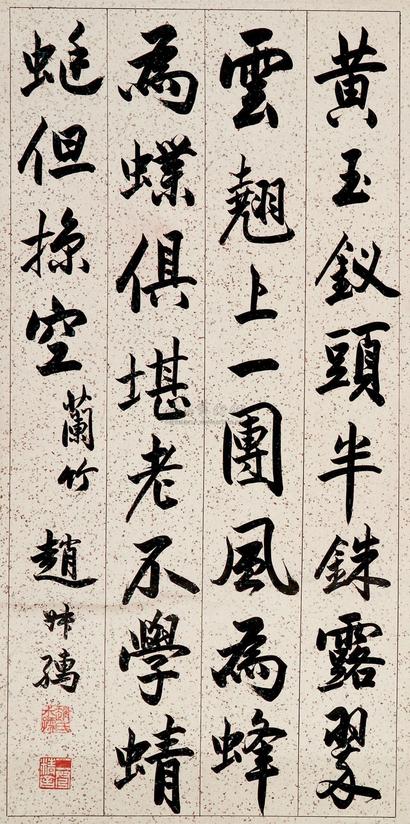 黃玉釵頭半銖露翠
雲翹上一團風為蜂
為蝶俱堪老不學蜻
蜓但掠空
蘭竹
趙叔孺